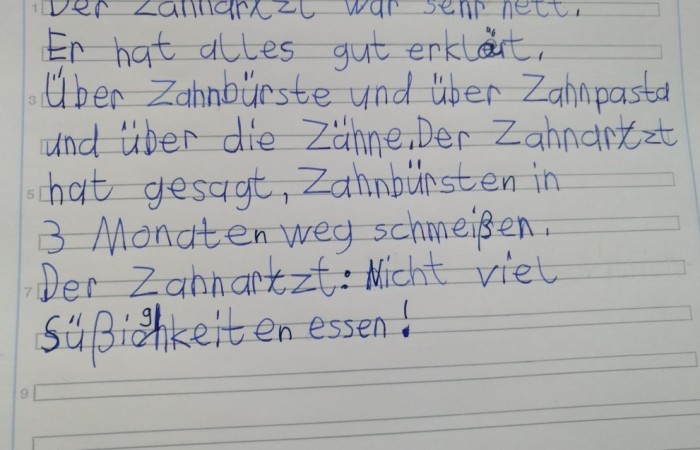 1 Der Zahnarkzt war sehr nett.
Er hat alles gut erklärt.
3 Über Zahnbürste und über Zahnpasta
und über die Zähne. Der Zahnartzt
5 hat gesagt, Zahnbürsten in
3 Monaten weg schmeißen.
7 Der Zahnarkzt: Nicht viel
Süßigkeiten essen!
9